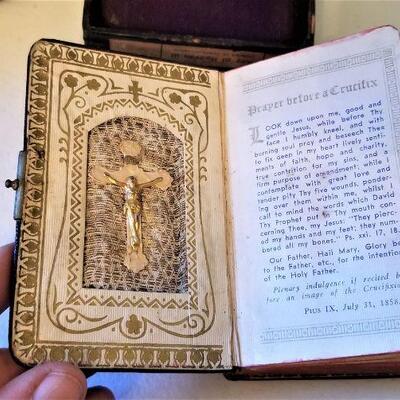 Prayer before a Crucifix
LOOK down upon me, good and
gentle Jesus, while before Thy
face I humbly kneel, and with
burning soul pray and beseech Thee
to fix deep in my heart lively senti-
ments of faith, hope and charity,
true contrition for my sins, and a
firm purpose of amendment, while I
contemplate with great love and
tender pity Thy five wounds, ponder-
ing over them within me, whilst I
call to mind the words which David
Thy Prophet put Thy mouth con-
cerning Thee, my Jesus: "They pierc-
ed my hands and my feet; they num-
bered all my bones." Ps. xxi. 17, 18.
Our Father, Hail Mary, Glory be
to the Father, etc., for the intention
of the Holy Father.
Plenary indulgence if recited be-
fore an image of the Crucifixion
PIUS IX, July 31, 1858.